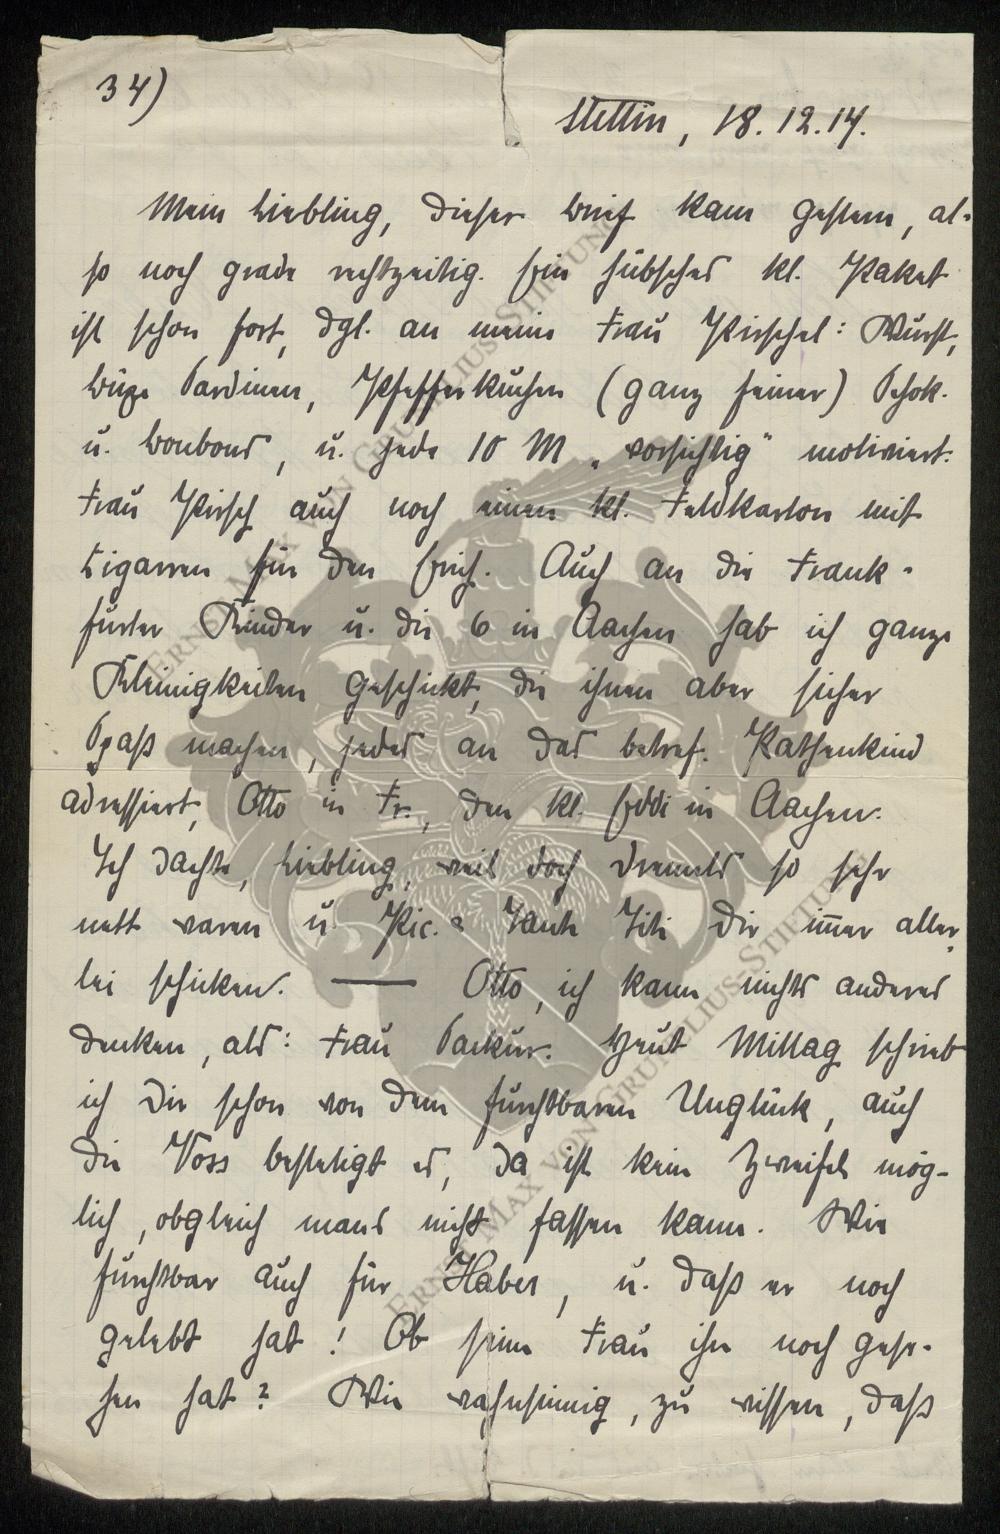 34)
Stettin, 18.12.14.
Mein Liebling, dieser Brief kam gestern, al-
so noch grade rechtzeitig. Ein hübsches kl. Paket
ist schon fort, dgl. an meine Frau Pirschel: Wurst,
Büxe Sardinen, Pfefferkuchen (ganz feiner) Schok.
u. Bonbons, u. jede 10 M „vorsichtig" motiviert.
Frau Pirsch auch noch einen kl. Feldkarton mit
Cigarren für den Erich. Auch an die Frank-
furter Kinder u. die 6 in Aachen hab ich ganze
Kleinigkeiten geschickt, die ihnen aber sicher
Spaß machen, jedes an das betref. Pathenkind
adressiert, Otto in Fr., den kl. Eddi in Aachen.
Ich dachte, Liebling, weil doch Dremels so sehr
nett waren u. Tante Titi Dir immer aller-
lei schicken. — Otto, ich kann nichts anderes
denken, als: Frau Sackur. Heut Mittag schrieb
ich Dir schon von dem furchtbaren Unglück, auch
die Voss bestetigt es, da ist kein Zweifel mög-
lich, obgleich mans nicht fassen kann. Wie
furchtbar auch für Haber, u. daß er noch
gelebt hat! Ob seine Frau ihn noch gese-
hen hat? Wie wahnsinnig, zu wissen, daß
ERNST MAX VON GRUNELIUS-STIFTUNG
ERNST MAX VON GRUNELIUS-STIFTUNG